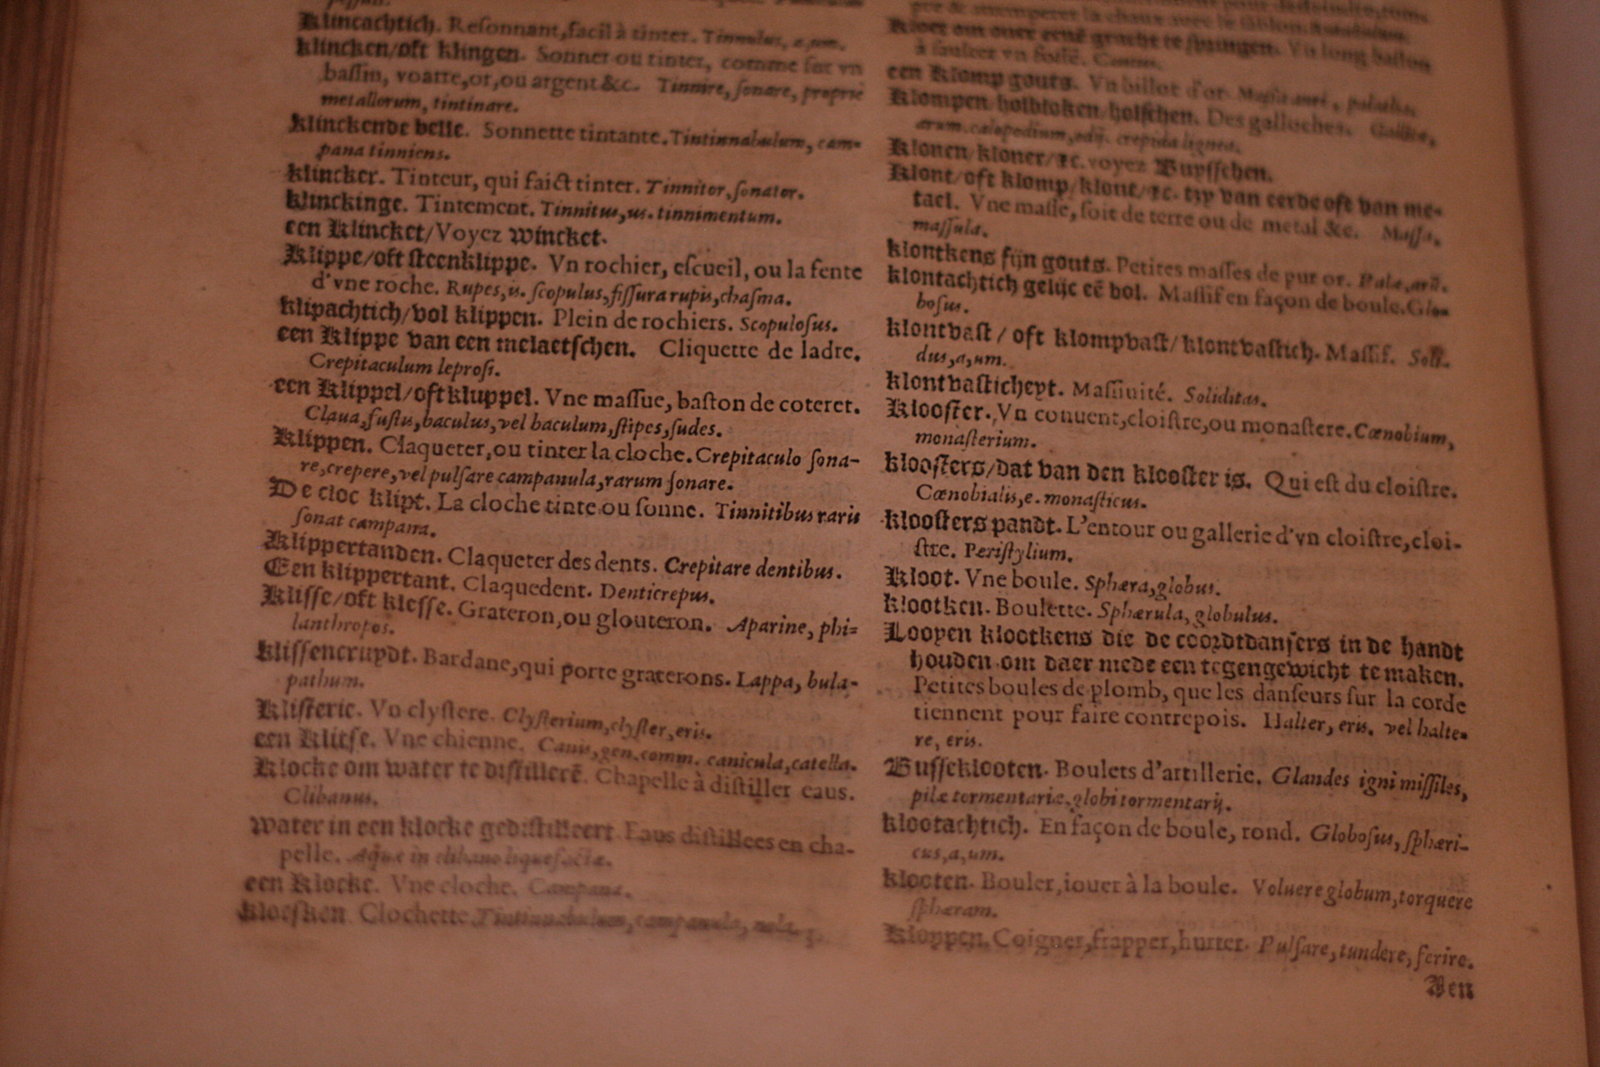 Klincachtich. Resonnant, facil à tinter. Tinnulus, a, um.
klincken/oft klingen. Sonner ou tinter, comme fer vn
bassin, voatre, or, ou argent &c. Tinnire, sonare, propriè
metallorum, tintinare.
klinckende belle. Sonnette tintante. Tintinnabulum, cam-
pana tinniens.
klincker. Tinteur, qui faict tinter. Tinnitor, sonator.
klinckinge. Tintement. Tinnitus, us. tinnimentum.
een Klincket/Voyez Wincket.
Klippe/oft steenklippe. Vn rochier, escueil, ou la fente
d'vne roche. Rupes, is. scopulus, fissura rupis, chasma.
klipachtich/vol klippen. Plein de rochiers. Scopulosus.
een Klippe van een melaetschen. Cliquette de ladre.
Crepitaculum leprosi.
een Klippel/oft kluppel. Vne massue, baston de coteret.
Claua, fustis, baculus, vel baculum, stipes, sudes.
Klippen. Claqueter, ou tinter la cloche. Crepitaculo sona-
re, crepere, vel pulsare campanula, rarum sonare.
De cloc klipt. La cloche tinte ou sonne. Tinnitibus raris
sonat campana.
Klippertanden. Claqueter des dents. Crepitare dentibus.
Een klippertant. Claquedent. Denticrepus.
Klisse/oft klesse. Grateron, ou glouteron. Aparine, phi-
lanthropos.
klissencruydt. Bardane, qui porte graterons. Lappa, bula-
pathum.
Klisterie. Vn clystere. Clysterium, clyster, eris.
een Klitse. Vne chienne. Canis, gen. comm. canicula, catella.
Klocke om water te distillerē. Chapelle à distiller eaus.
Clibanus.
Water in een klocke gedistilleert. Eaus distillees en cha-
pelle. Aquæ in clibano liquefactæ.
een Klocke. Vne cloche. Campana.
Klocsken. Clochette. Tintinnabulum, campanula, nola.
Kloet om over eenē gracht te springen. Vn long baston
à saulter vn fossé. Contus.
een Klomp gouts. Vn billot d'or. Massa auri, palacha.
Klompen/holbloken/holschen. Des galloches. Gallicæ,
arum. calopodium, odij. crepida lignea.
Klonen/kloner/&c. voyez Buysschen.
Klont/oft klomp/klont/&c. tzy van eerde oft van me-
tael. Vne masse, soit de terre ou de metal &c. Massa,
massula.
klontkens fijn gouts. Petites masses de pur or. Palæ, arū.
klontachtich gelijc eē bol. Massif en façon de boule. Glo-
bosus.
klontvast / oft klompvast/klontvastich. Massif. Soli-
dus, a, um.
klontvasticheyt. Massiuité. Soliditas.
Klooster. Vn conuent, cloistre, ou monastere. Cœnobium,
monasterium.
kloosters/dat van den klooster is. Qui est du cloistre.
Cœnobialis, e. monasticus.
kloosters pandt. L'entour ou gallerie d'vn cloistre, cloi-
stre. Peristylium.
Kloot. Vne boule. Sphæra, globus.
klootken. Boulette. Sphærula, globulus.
Loopen klootkens die de coordtdansers in de handt
houden om daer mede een tegengewicht te maken.
Petites boules de plomb, que les danseurs sur la corde
tiennent pour faire contrepois. Halter, eris. vel halte-
re, eris.
Busseklooten. Boulets d'artillerie. Glandes igni missiles,
pilæ tormentariæ, globi tormentarij.
klootachtich. En façon de boule, rond. Globosus, sphæri-
cus, a, um.
klooten. Bouler, iouer à la boule. Voluere globum, torquere
sphæram.
Kloppen. Coigner, frapper, hurter. Pulsare, tundere, ferire.
Een